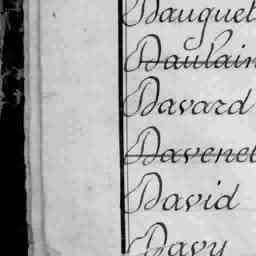 Dauquet
Daulain
Davard
Davenel
David
Davy